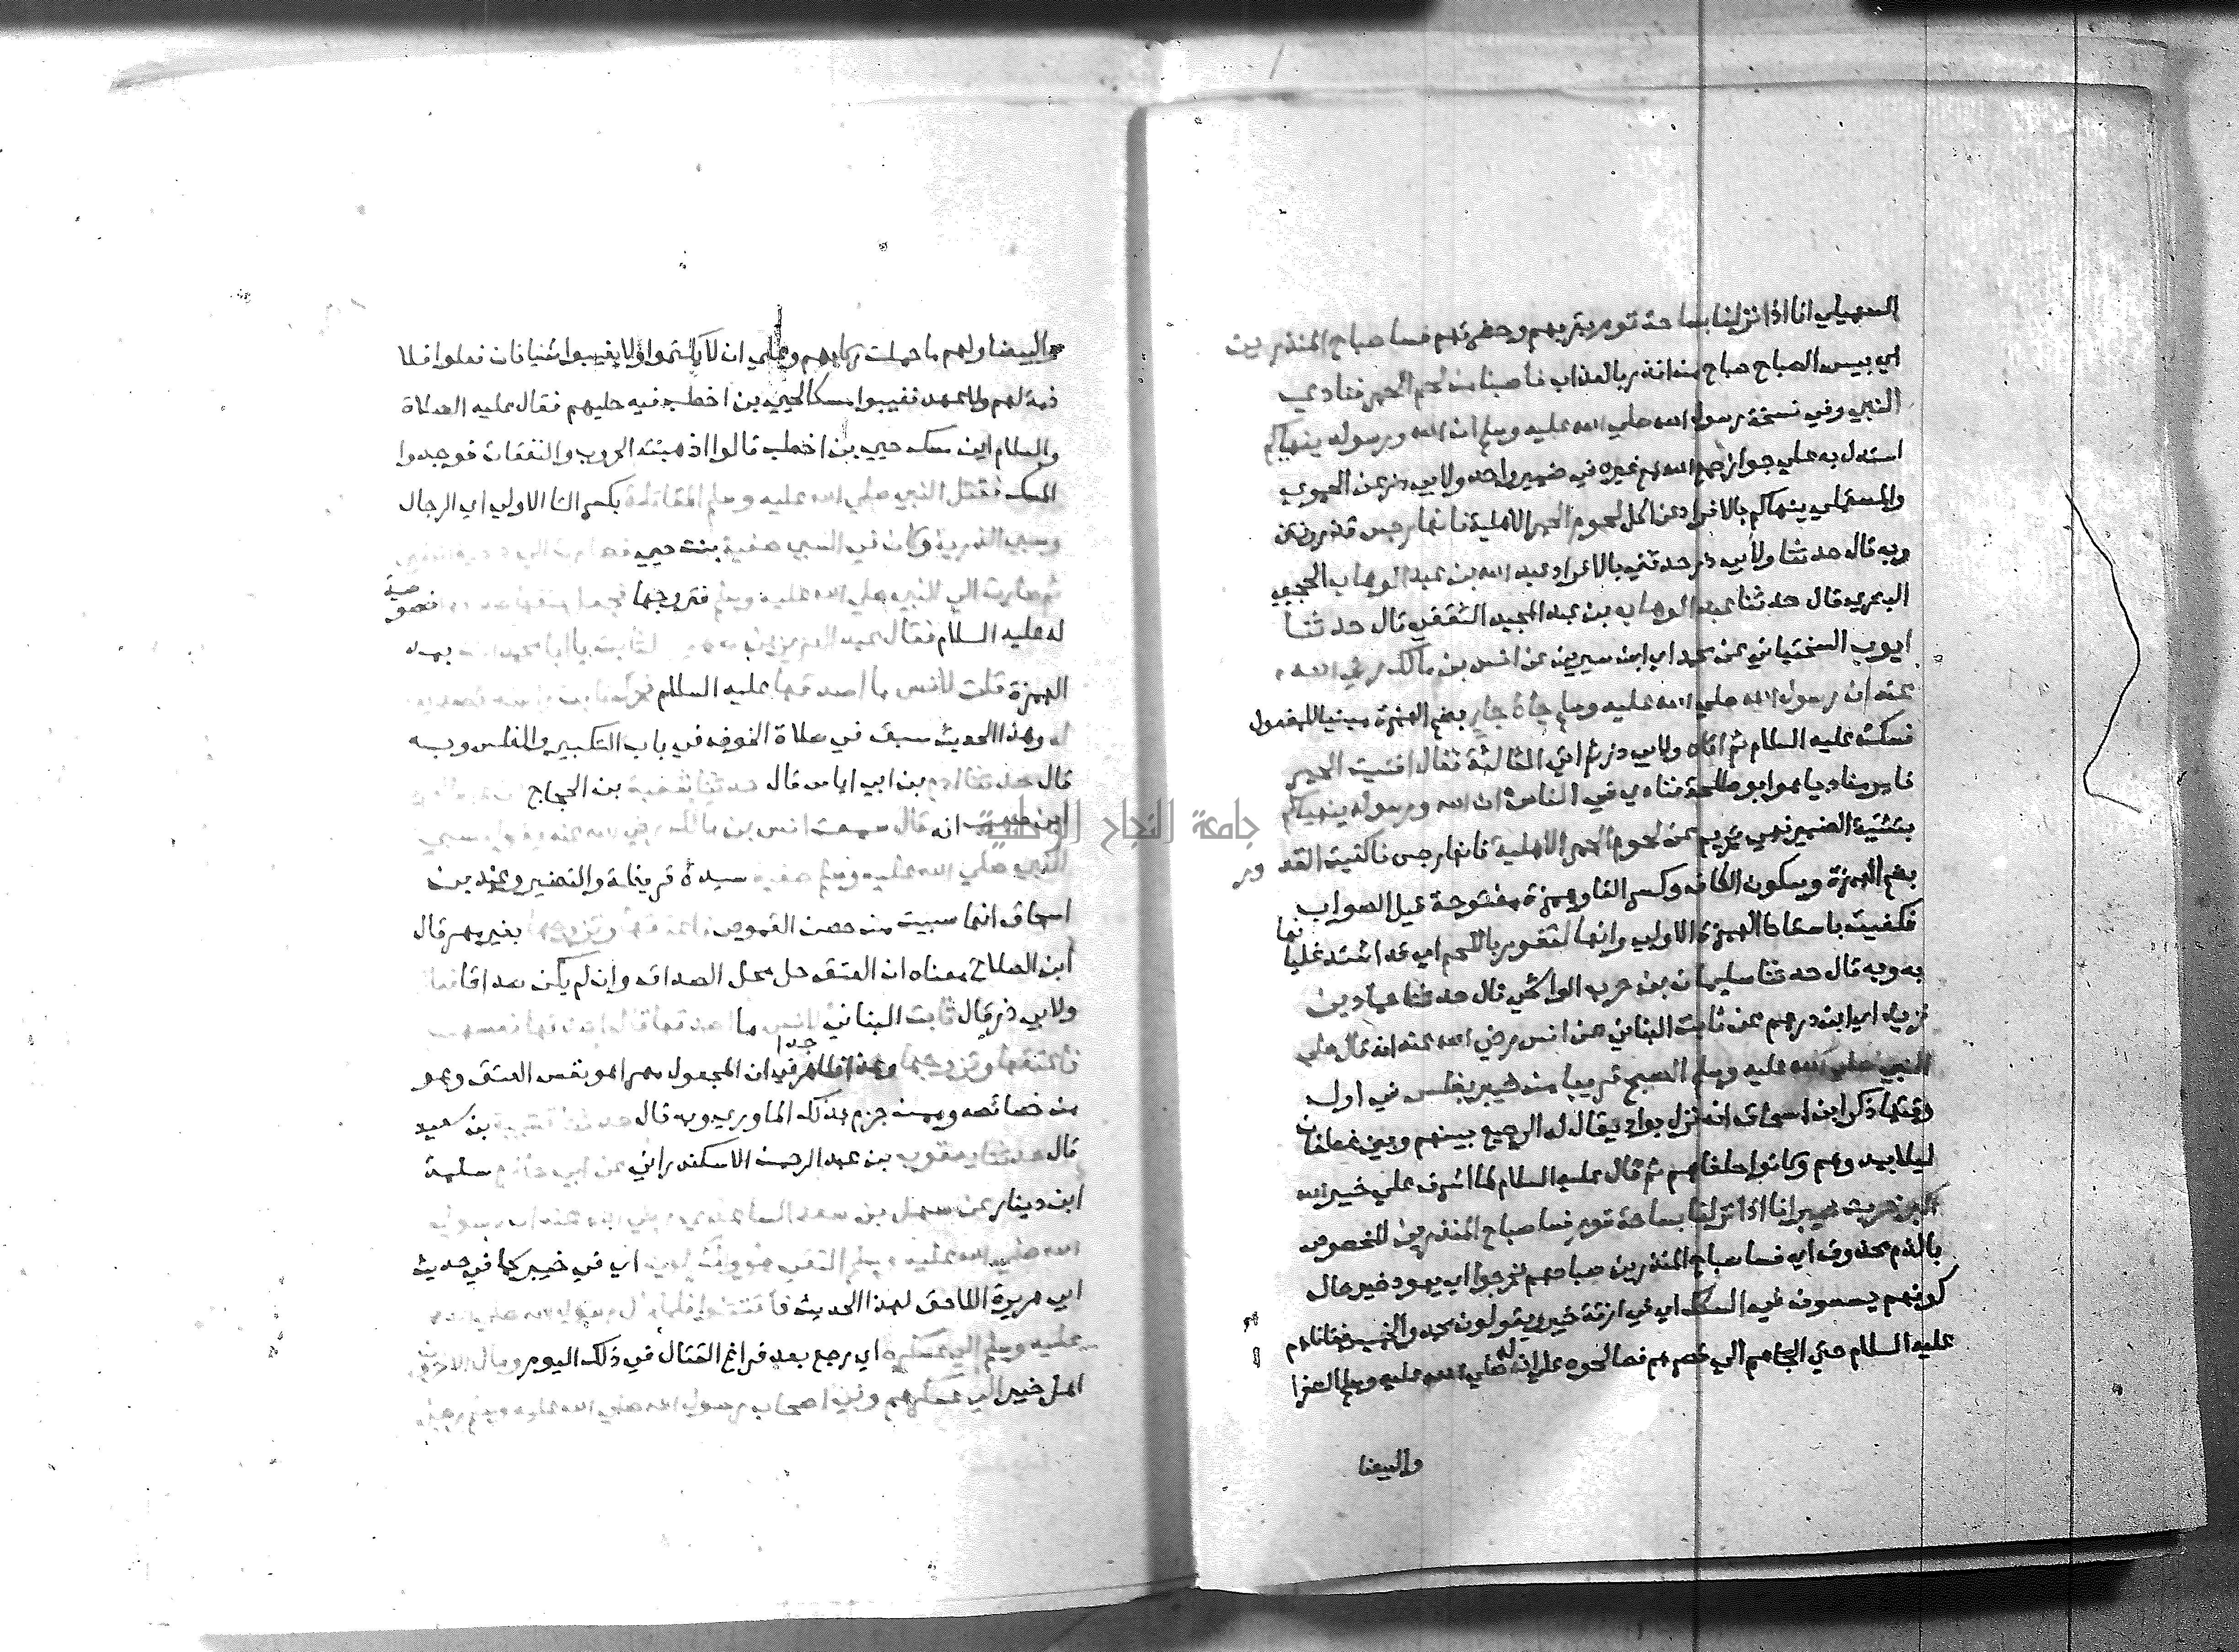 السهيلي انا اذا نزلنا بساحة قوم بقربهم وحضرتهم فسا صباح المنذرين
اي بيس الصباح صباح من انذر بالعذاب فاصبنا من لحم الحمر فنادي
النبي وفي نسخة رسول الله صلي الله عليه وسلم ان الله ورسوله ينهياكم
استدل به علي جواز جمع الله مع غيره في ضمير واحد ولابي ذر عن الحموي
والمستملي ينهاكم بالافراد عن اكل لحوم الحمر الاهلية فانها رجس
وبه قال حدثنا ولابي ذر حدثني بالافراد عبد الله بن عبد الوهاب الحجبي
البصري قال حدثنا عبد الوهاب بن عبد المجيد الثقفي قال حدثنا
ايوب السختياني عن محمد اي ابن سيرين عن انس بن مالك رضي الله
عنه ان رسول الله صلي الله عليه وسلم جاه جاي بضم الهمزة مبنيا للمفعول
فسكت عليه السلام ثم اتاه ولابي ذر ثم اتي الثالثة فقال افنيت الحمر
فامر مناديا هو ابو طلحة فنادي في الناس ان الله ورسوله ينهياكم
بتثنية الضمير نهي تحريم عن لحوم الحمر الاهلية فانها رجس فاكفيت القدور
بضم الهمزة وسكون الكاف وكسر الفا وهمزة مفتوحة قيل الصواب
فكفيت باسقاط الهمزة الاولي وانها لتفور باللحم اي قد اشتد غليانها
به وبه قال حدثنا سليمان بن حرب الواشحي قال حدثنا حماد بن
زيد اي ابن درهم عن ثابت البناني عن انس رضي الله عنه انه قال صلي
النبي صلي الله عليه وسلم الصبح قريبا من خيبر بغلس في اول
وقتها ذكر ابن اسحاق انه نزل بواد يقال له الرجيع بينهم وبين غطفان
ليلا يمدوهم وكانوا حلفاهم ثم قال عليه السلام لما اشرف علي خيبر الله
اكبر خربت خيبر انا اذا نزلنا بساحة قوم فسا صباح المنذرين المخصوص
بالذم محذوف اي فسا صباح المنذرين صباحهم فخرجوا اي يهود خيبر حال
كونهم يسعون في السكك اي في ازقة خيبر ويقولون محمد والخميس فقاتلهم
عليه السلام حتي الجاهم الي قصرهم فصالحوه علي ان له صلي الله عليه وسلم الصفرا
والبيضا
والبيضا ولهم ما حملت ركابهم وعلي ان لا يكتموا ولا يغيبوا شيا فان فعلوا فلا
ذمة لهم ولا عهد فغيبوا مسكا لحيي بن اخطب فيه حليهم فقال عليه الصلاة
والسلام اين مسك حيي بن اخطب قالوا اذهبته الحروب والنفقات فوجدوا
المسك فقتل النبي صلي الله عليه وسلم المقاتلة بكسر التا الاولي اي الرجال
وسبي الذرية وكان في السبي صفية بنت حيي
ثم صارت الي النبي صلي الله عليه وسلم فتزوجها فجعل عتقها
له عليه السلام فقال عبد العزيز بن لثابت يا ابا محمد بمد
الهمزة قلت لانس ما اصدقها عليه السلام
له وهذا الحديث سبق في صلاة الخوف في باب التكبير والغلس وبه
قال حدثنا ادم بن ابي اياس قال حدثنا شعبة بن الحجاج
ابن صهيب انه قال سمعت انس بن مالك رضي الله عنه يقول سبي
النبي صلي الله عليه وسلم صفية سيدة قريظة والنضير وعند بن
اسحاق انها سبيت من حصن القموص فاعتقها وتزوجها بغير مهر قال
ابن الصلاح معناه ان العتق حل محل الصداق وان لم يكن صداقا
ولابي ذر قال ثابت البناني لانس ما اصدقها قال اصدقها نفسها
فاعتقها وتزوجها وهذا ظاهر جدا في ان المجعول مهرا هو نفس العتق وهو
من خصائصه وممن جزم بذلك الماوردي وبه قال حدثنا قتيبة بن سعيد
قال حدثنا يعقوب بن عبد الرحمن الاسكندراني عن ابي حازم سلمة
ابن دينار عن سهل بن سعد الساعدي رضي الله عنه ان رسول
الله صلي الله عليه وسلم التقي هو والمشركون اي في خيبر كما في حديث
ابي هريرة اللاحق لهذا الحديث فاقتتلوا فلما مال رسول الله صلي الله
عليه وسلم الي عسكره اي رجع بعد فراغ القتال في ذلك اليوم ومال الاخرون
اهل خيبر الي عسكرهم وفي اصحاب رسول الله صلي الله عليه وسلم رجل
جامعة النجاح الوطنية